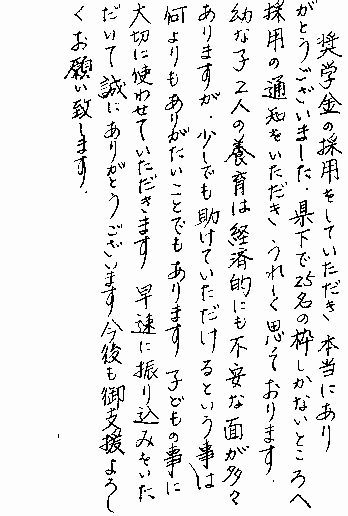 奨学金の採用をしていただき本当にあり
がとうございました.県下で25名の枠しかないところへ
採用の通知をいただきうれしく思っております.
幼な子2人の養育は経済的にも不安な面が多々
ありますが.少しでも助けていただけるという事は
何よりもありがたいことでもあります子どもの事に
大切に使わせていただきます 早速に振り込みをいた
だいて誠にありがとうございます今後も御支援よろし
くお願い致します.